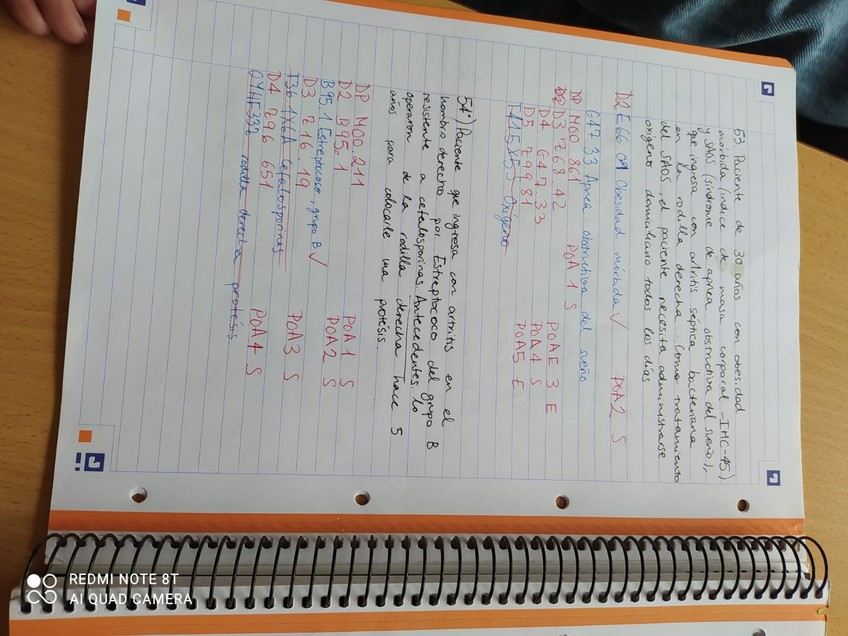 53. Paciente de 30 años con obesidad
mórbida (índice de masa corporal -IMC-45)
y SAOS (síndrome de apnea obstructiva del sueño),
que ingresa con artritis séptica bacteriana
en la rodilla derecha. Como tratamiento
del SAOS, el paciente necesita administrarse
oxígeno domiciliario todos los días
D2 E66.01 Obesidad mórbida ✓ POA2 S
G47.33 Apnea obstructiva del sueño
DP M00.861 POA 1 S
D2 D3 Z68.42 POAE 3 E
D4 G47.33 POA4 S
D5 Z99.81 POA5 E
Oxígeno
54) Paciente que ingresa con artritis en el
hombro derecho por Estreptococo del grupo B
resistente a cefalosporinas. Antecedentes: lo
operaron de la rodilla derecha hace 5
años para colocarle una protésis.
DP M00.211 POA1 S
D2 B95.1 POA2 S
B95.1 Estreptococo, grupo B ✓
D3 Z16.19 POA3 S
T36.1X6A Cefalosporinas
D4 Z96.651 POA4 S
rodilla derecha protésis
REDMI NOTE 8T
AI QUAD CAMERA